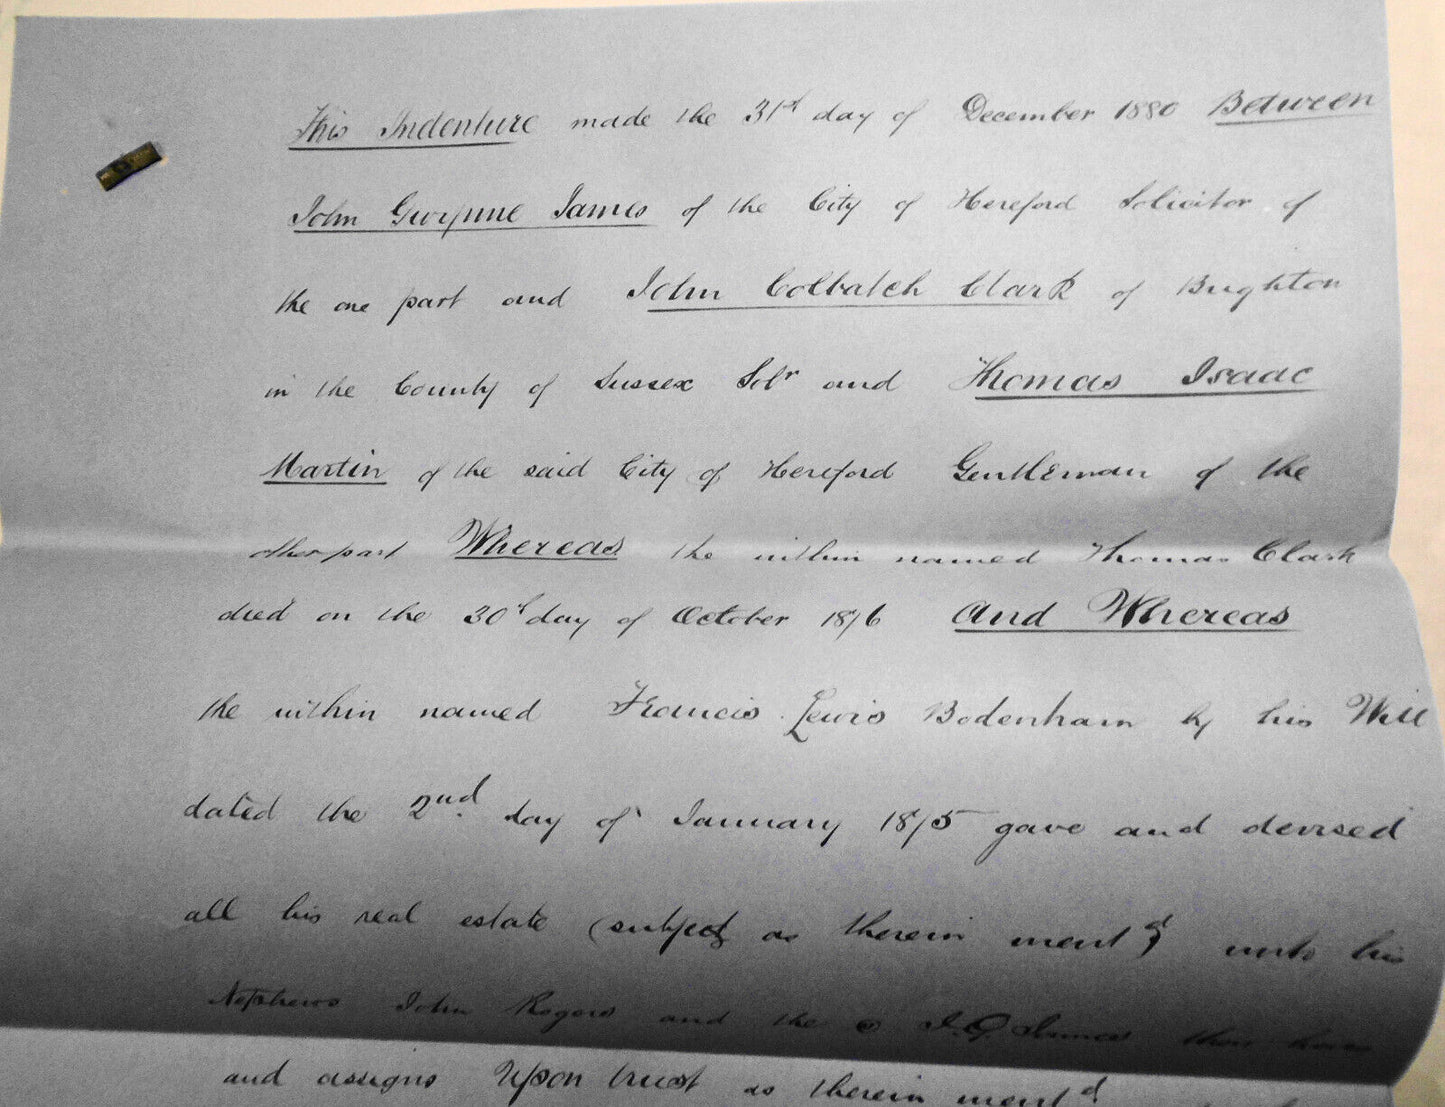 This Indenture made the 31st day of December 1880 Between
John Gwynne James of the City of Hereford Solicitor of
the one part and John Colbatch Clark of Brighton
in the County of Sussex Solr and Thomas Isaac
Martin of the said City of Hereford Gentleman of the
other part Whereas the within named Thomas Clark
died on the 30th day of October 1876 And Whereas
the within named Francis Lewis Bodenham by his Will
dated the 2nd day of January 1875 gave and devised
all his real estate (subject as therein mentd) unto his
Nephews John Rogers and the sd J. G. James their heirs
and assigns Upon trust as therein mentd